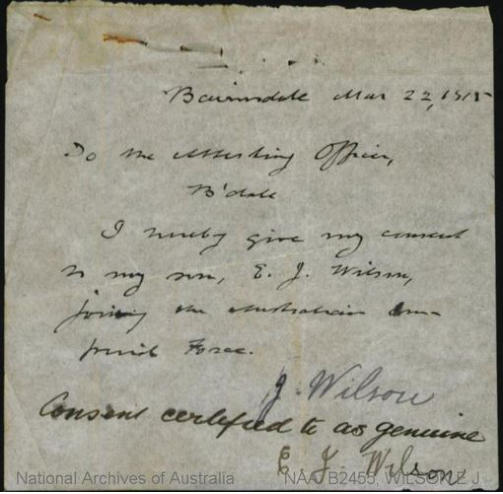 Bairnsdale Mar 22, 1915
To the Attesting Officer,
B'dale
I hereby give my consent
to my son, E. J. Wilson,
joining the Australian Im-
perial Force.
J. Wilson
Consent certified to as genuine
E. J. Wilson
National Archives of Australia NAA: B2455, WILSON E J